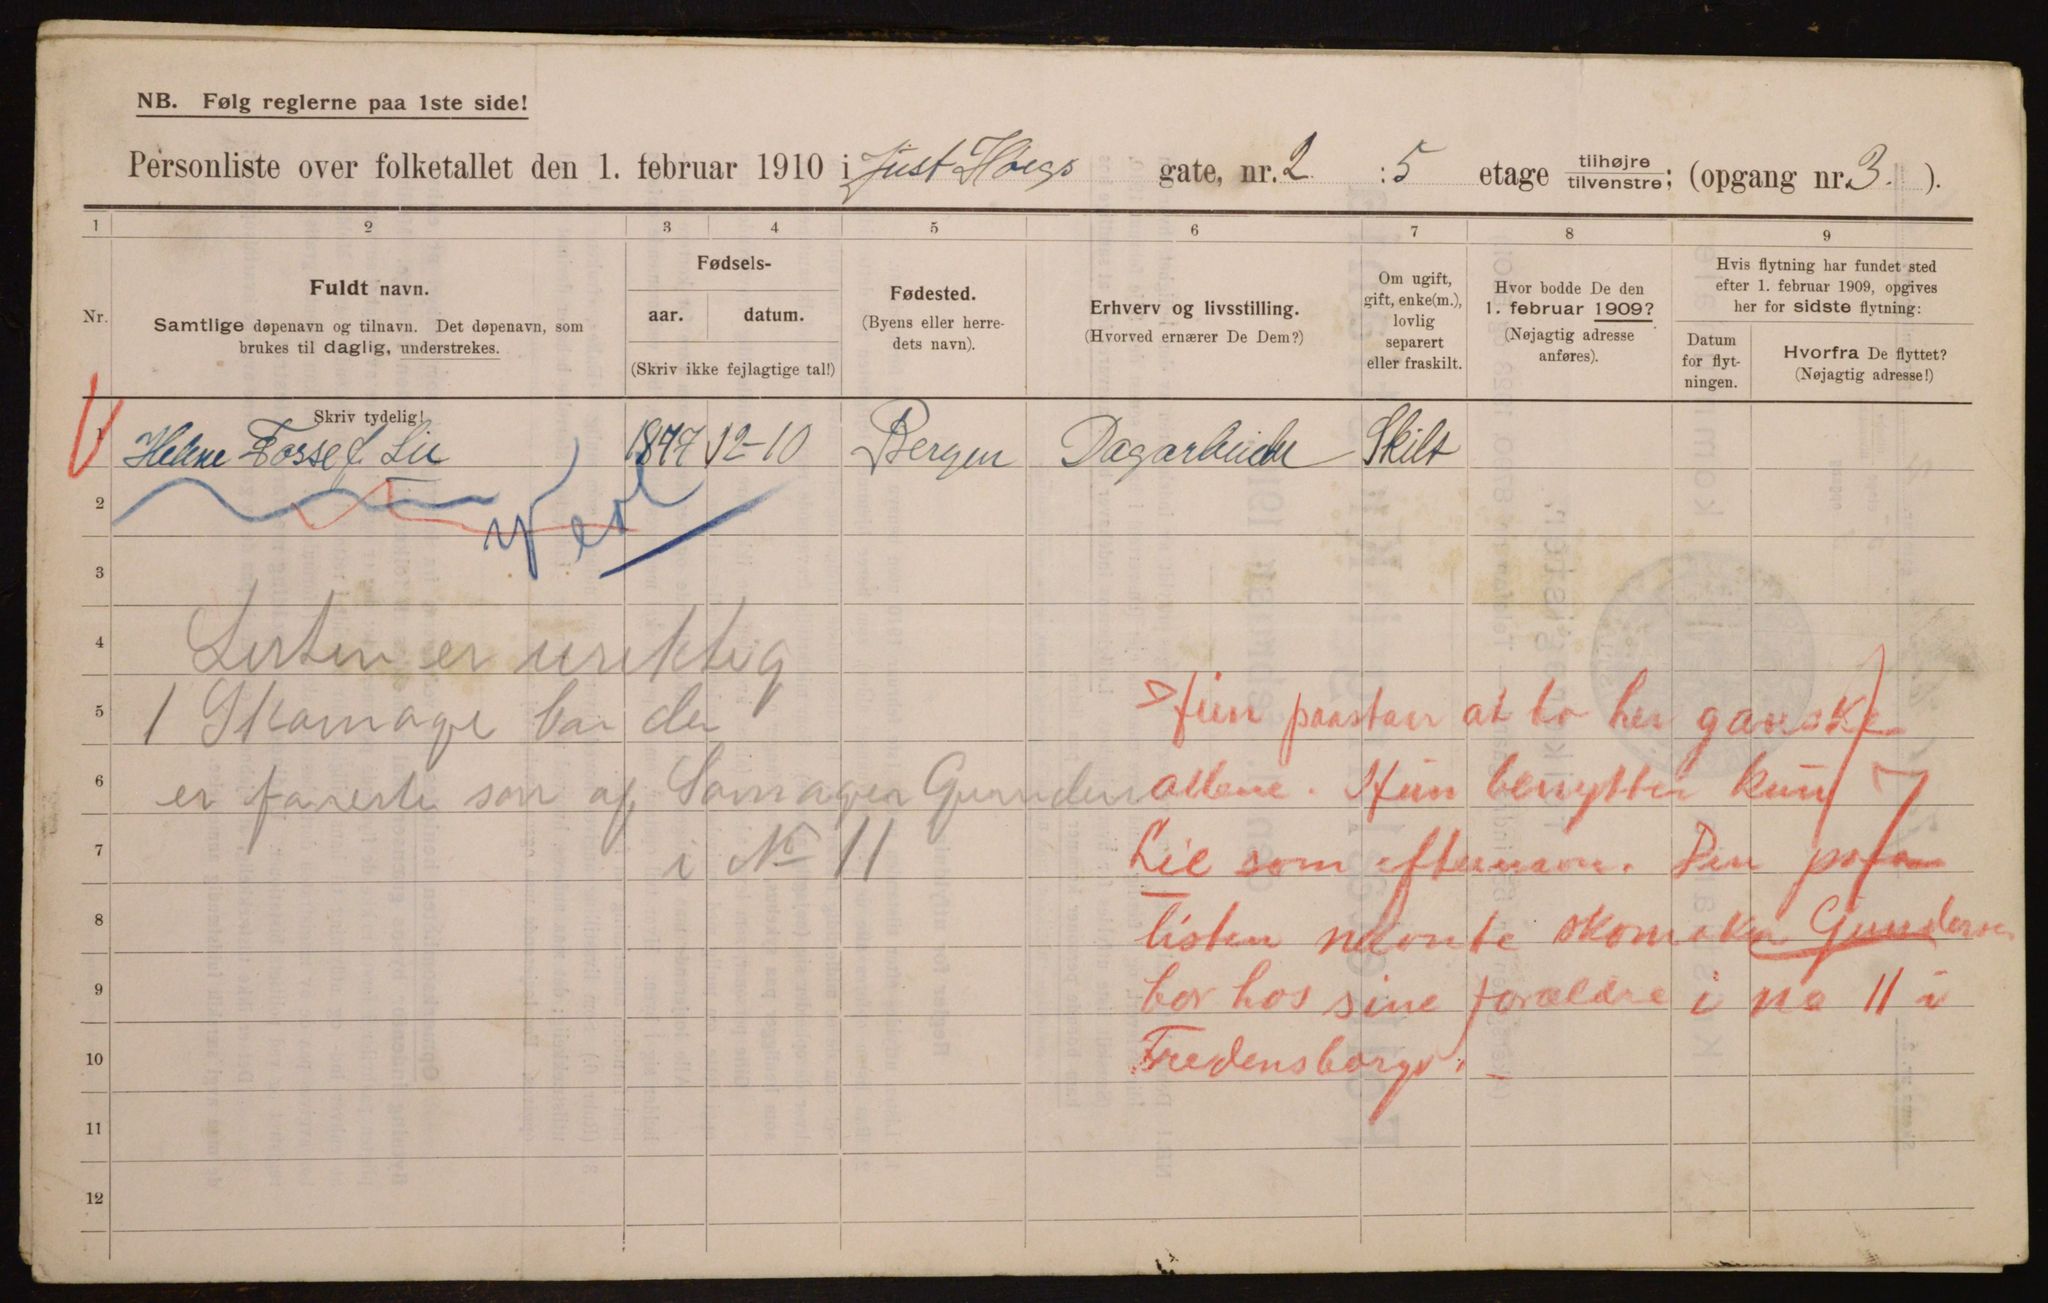 NB. Følg reglerne paa 1ste side!
Personliste over folketallet den 1. februar 1910 i Just Høegs gate, nr. 2 : 5 etage tilhøjre/tilvenstre; (opgang nr. 3. ).
1 2 3 4 5 6 7 8 9
Nr.
Fuldt navn.
Samtlige døpenavn og tilnavn. Det døpenavn, som
brukes til daglig, understrekes.
Skriv tydelig!
Fødsels-
aar. datum.
(Skriv ikke fejlagtige tal!)
Fødested.
(Byens eller herre-
dets navn).
Erhverv og livsstilling.
(Hvorved ernærer De Dem?)
Om ugift,
gift, enke(m.),
lovlig
separert
eller fraskilt.
Hvor bodde De den
1. februar 1909?
(Nøjagtig adresse
anføres).
Hvis flytning har fundet sted
efter 1. februar 1909, opgives
her for sidste flytning:
Datum
for flyt-
ningen.
Hvorfra De flyttet?
(Nøjagtig adresse!)
1 Helene Fosse f. Lie 1877 12-10 Bergen Dagarbeider Skilt
2
3
4 Listen er uriktig
5 1 Skomager bor der
6 er som af Gunder
7 i No 11
8
9
10
11
12
Hun paastaar at bo her ganske
allene. Hun benytter kun
Lie som efternavn. Den paa
listen nævnte skomaker Gundersen
bor hos sine forældre i no 11 i
Fredensborgv.